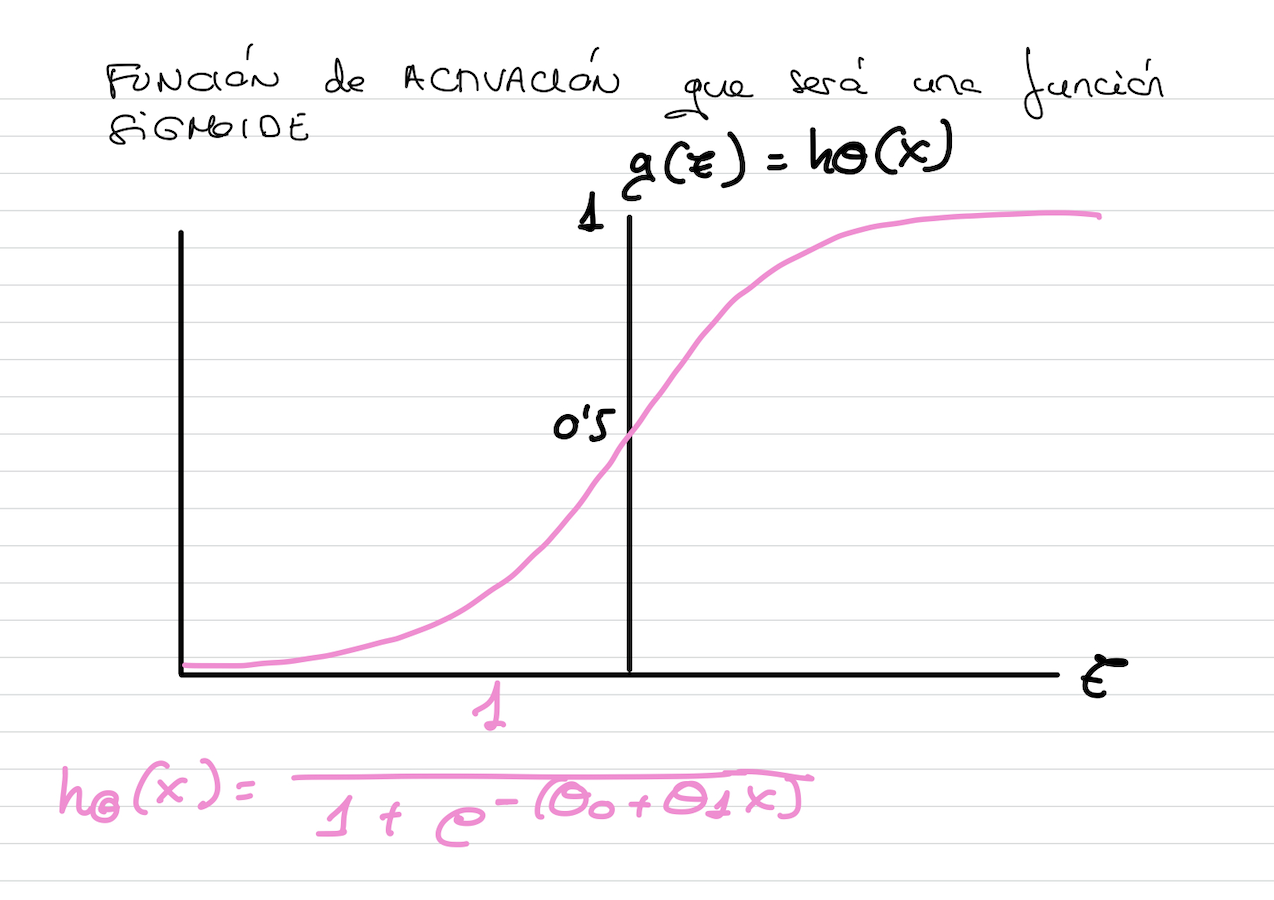 FUNCIÓN de ACTIVACIÓN que será una función
SIGMOIDE
g(z) = hθ(x)
1
0'5
z
1
hθ(x) = 
1 + e^-(θ0 + θ1x)